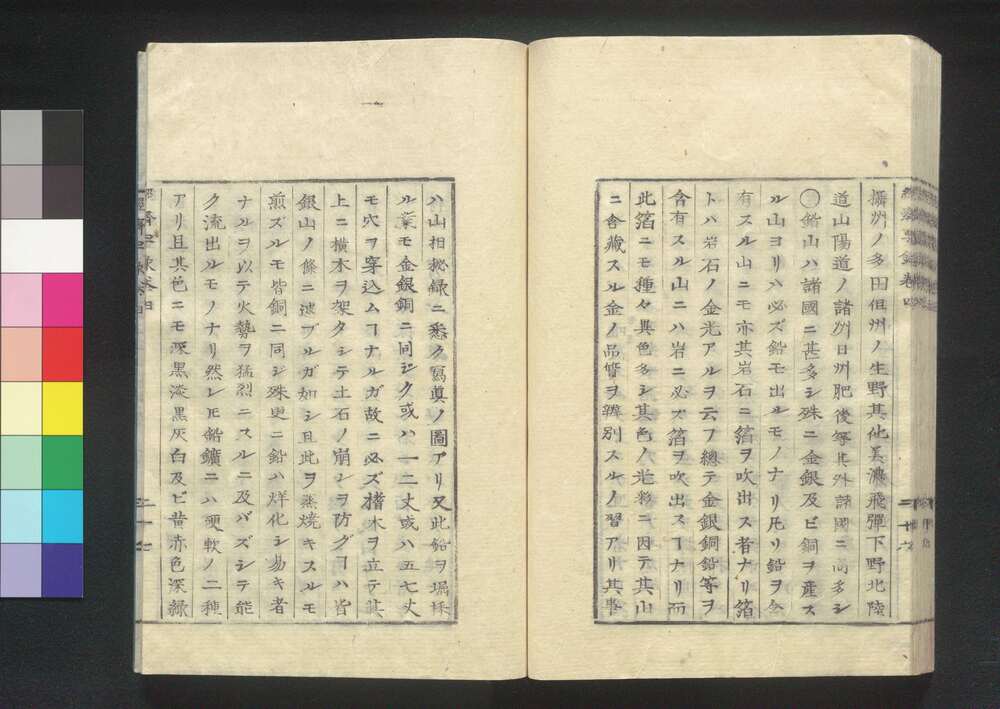 攝州ノ多田但州ノ生野其他美濃飛彈下野北陸
道山陽道ノ諸州日州肥後等其外諸國ニ尚多シ
〇鉛山ハ諸國ニ甚多シ殊ニ金銀及ビ銅ヲ產ス
ル山ヨリハ必ズ鉛モ出ルモノナリ凡ソ鉛ヲ含
有スル山ニモ亦其岩石ニ箔ヲ吹出ス者ナリ箔
トハ岩石ノ金光アルヲ云フ總テ金銀銅鉛等ヲ
含有スル山ニハ岩ニ必ズ箔ヲ吹出スヿナリ而
此箔ニモ種々異色多シ其色ノ光彩ニ因テ其山
ニ含藏スル金ノ品質ヲ辨別スルノ習アリ其事
二十六
ハ山相秘録ニ悉ク寫眞ノ圖アリ又此鉛ヲ堀採
ル業モ金銀銅ニ同ジク或ハ一二丈或ハ五七丈
モ穴ヲ穿込ムヿナルガ故ニ必ズ楷木ヲ立テ其
上ニ横木ヲ架タシテ土石ノ崩レヲ防グヿハ皆
銀山ノ條ニ述ブルガ如シ且此ヲ蒸燒キスルモ
煎ズルモ皆銅ニ同シ殊更ニ鉛ハ烊化シ易キ者
ナルヲ以テ火勢ヲ猛烈ニスルニ及バズシテ能
ク流出ルモノナリ然レ𪜈鉛鑛ニハ硬軟ノ二種
アリ且其色ニモ深黒淡黒灰白及ビ黄赤色深緑